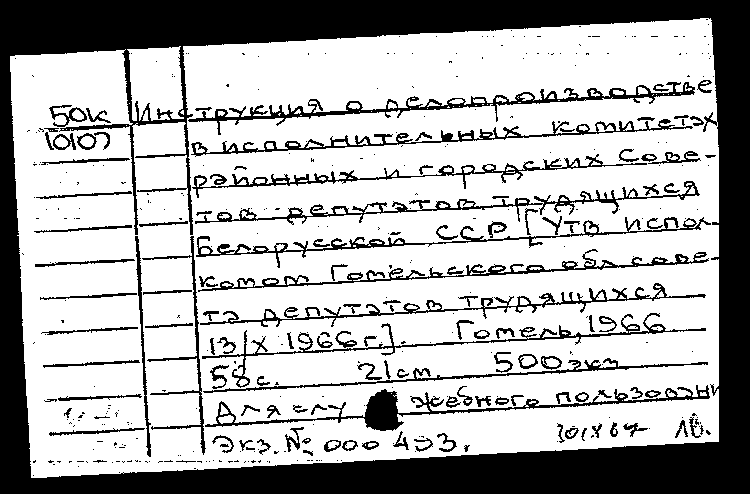 50к Инструкция о делопроизводстве
10107 в исполнительных комитетах
районных и городских Сове-
тов депутатов трудящихся
Белорусской ССР. [Утв. испол-
комом Гомельского обл. сове-
та депутатов трудящихся
13/X 1966г.]. Гомель, 1966.
58с. 21см. 500экз.
Для слу жебного пользовани
Экз. № 000493. 1б.